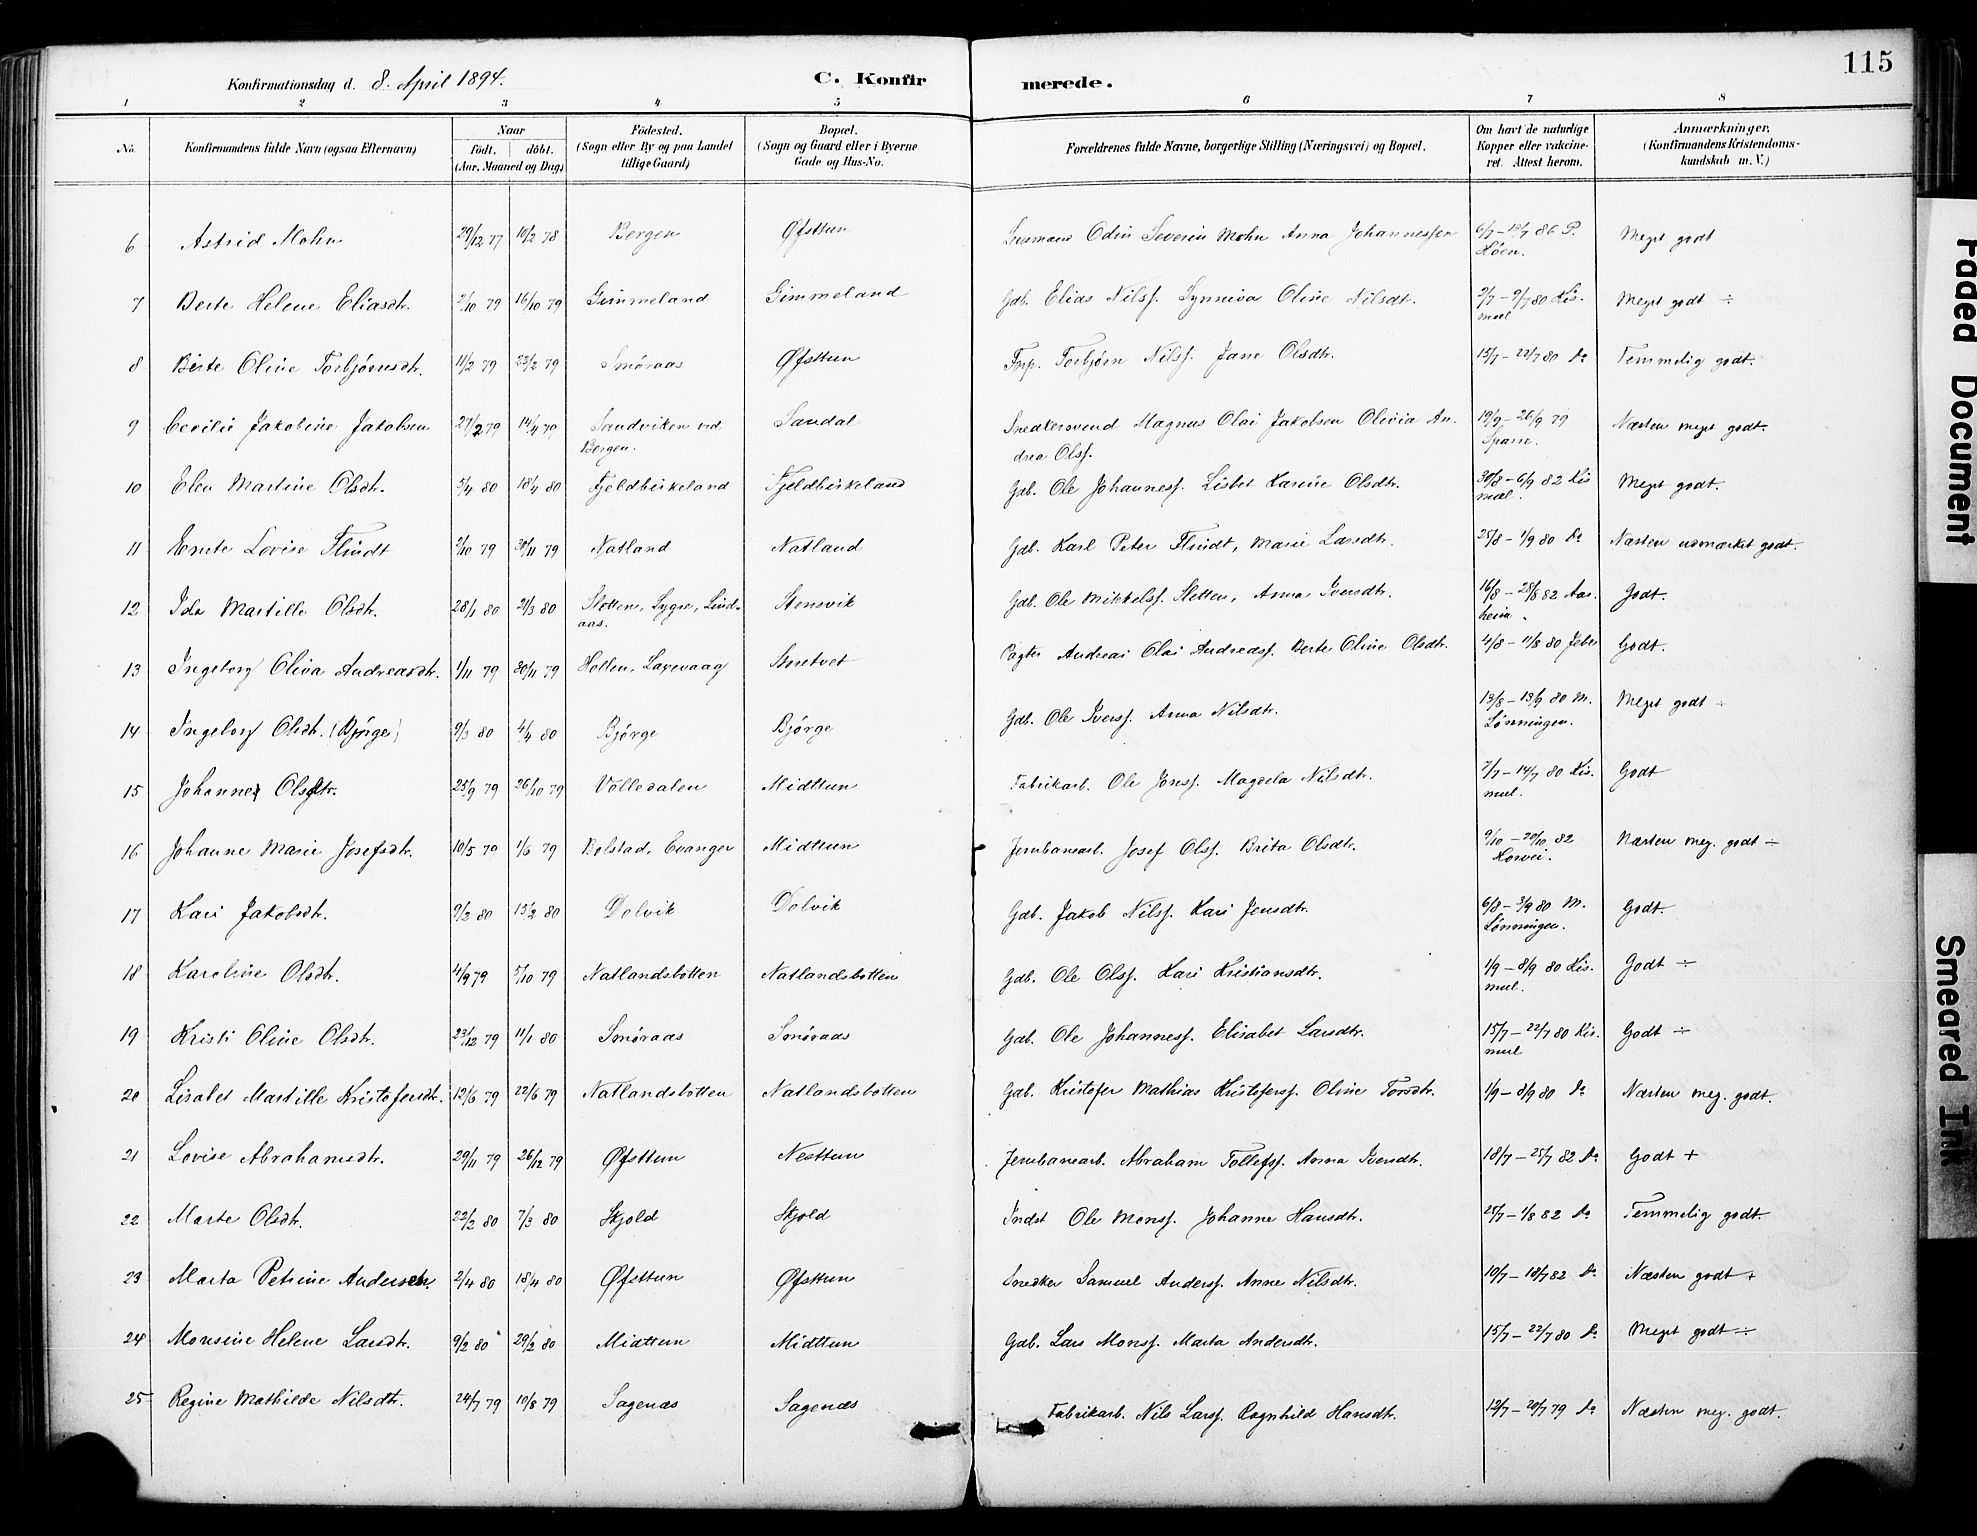 115
Konfirmationsdag d. 8. April 1894. C. Konfirmerede.
1 2 3 4 5 6 7 8
No. Konfirmandens fulde Navn (ogsaa Efternavn) Naar født. døbt. (Aar, Maaned og Dag) Fødested. (Sogn eller By og paa Landet tillige Gaard) Bopæl. (Sogn og Gaard eller i Byerne Gade og Hus-No. Forældrenes fulde Navne, borgerlige Stilling (Næringsvei) og Bopæl. Om havt de naturlige Kopper eller vakcineret. Attest herom. Anmærkninger. (Konfirmandens Kristendomskundskab m. V.)
6 Astrid Mohn 29/12 77 10/2 78 Bergen Øfsttun Odin Severin Mohn Anna Johannessen 6/7 – 13/7 86 P. Høen. Meget godt
7 Berte Helene Eliasdtr. 2/10 79 16/10 79 Gimmeland Gimmeland Gdb. Elias Nilss. Synneva Oline Nilsdtr. 2/7 – 9/7 80 Kismul Meget godt ÷
8 Berte Oline Torbjørnsdtr. 11/2 79 23/2 79 Smøraas Øfsttun Forp. Torbjørn Nilss. Jane Olsdtr. 15/7 – 22/7 80 do Temmelig godt.
9 Cecilie Jakobine Jakobsen 27/2 79 14/4 79 Sandviken ved Bergen. Sandal Snedkersvend Magnus Olai Jakobsen Olivia Andrea Olss. 19/9 – 26/9 79 Sparre. Næsten meget godt.
10 Elen Martine Olsdtr. 5/4 80 18/4 80 Fjeldbirkeland Fjeldbirkeland Gdb. Ole Johanness. Lisbet Karine Olsdtr. 30/8 – 6/9 82 Kismul. Meget godt.
11 Emte Lovise Flindt 2/10 79 30/11 79 Natland Natland Gdb. Karl Peter Flindt, Marie Larsdtr. 25/8 – 1/9 80 do Næsten udmærket godt.
12 Ida Martille Olsdtr. 28/1 80 21/3 80 Sletten, Sygre, Lindaas. Stensvik Gdb. Ole Mikkelss. Sletten, Anna Iversdtr. 16/8 – 23/8 82 Aarheim. Godt.
13 Ingeborg Oliva Andreasdtr. 1/11 79 30/11 79 Hollen, Laxevaag Storetvet Pagter Andreas Olai Andreass. Berte Oline Olsdtr. 4/8 – 11/8 80 Jebe Godt.
14 Ingeborg Olsdtr. (Bjørge) 9/3 80 4/4 80 Bjørge Bjørge Gdb. Ole Iverss. Anna Nilsdtr. 13/8 – 13/9 80 M. Lønningen. Meget godt ÷
15 Johanne Olsdtr. 25/9 79 26/10 79 Volledalen Midttun Fabrikarb. Ole Jonss. Magdela Nilsdtr. 7/7 – 14/7 80 Kismul. Godt
16 Johanne Marie Josefsdtr. 10/5 79 1/6 79 Bolstad, Evanger Midttun Jernbanearb. Josef Olss. Brita Olsdtr. 9/10 – 20/10 82 Horvei. Næsten meg. godt ÷
17 Kari Jakobsdtr. 9/2 80 15/2 80 Dolvik Dolvik Gdb. Jakob Nilss. Kari Jensdtr. 6/8 – 3/9 80 M. Lønningen. Godt.
18 Karoline Olsdtr. 4/9 79 5/10 79 Natlandsbotten Natlandsbotten Gdb. Ole Olss. Kari Kristiansdtr. 1/9 – 8/9 80 Kismul. Godt ÷
19 Kristi Oline Olsdtr. 23/12 79 11/1 80 Smøraas Smøraas Gdb. Ole Johanness. Elisabet Larsdtr. 15/7 – 22/7 80 Kismul Godt ÷
20 Lisabet Martille Kristofersdtr. 12/6 79 22/6 79 Natlandsbotten Natlandsbotten Gdb. Kristofer Mathias Kristoferss. Oline Torsdtr. 1/9 – 8/9 80 do Næsten meg. godt.
21 Lovise Abrahamsdtr. 29/11 79 26/12 79 Øfsttun Nesttun Jernbanearb. Abraham Tollefss. Anna Iversdtr. 18/7 – 25/7 82 do Godt +
22 Marte Olsdtr. 22/2 80 7/3 80 Skjold Skjold Indst Ole Monss. Johanne Hansdtr. 25/7 – 1/8 82 do Temmelig godt.
23 Marta Petrine Andersen. 2/4 80 18/4 80 Øfsttun Øfsttun Snedker Samuel Anderss. Anne Nilsdtr. 10/7 – 18/7 82 do Næsten godt +
24 Monsine Helene Larsdtr. 9/2 80 29/2 80 Midttun Midttun Gdb. Lars Monss. Marta Andersdtr. 15/7 – 22/7 80 do Meget godt ÷
25 Regine Mathilde Nilsdtr. 24/7 79 10/8 79 Sagenæs Sagenæs Fabrikarb. Nils Larss. Ragnhild Hansdtr. 12/7 – 20/7 79 do Næsten meg. godt.
Faded Document
Smeared Ink